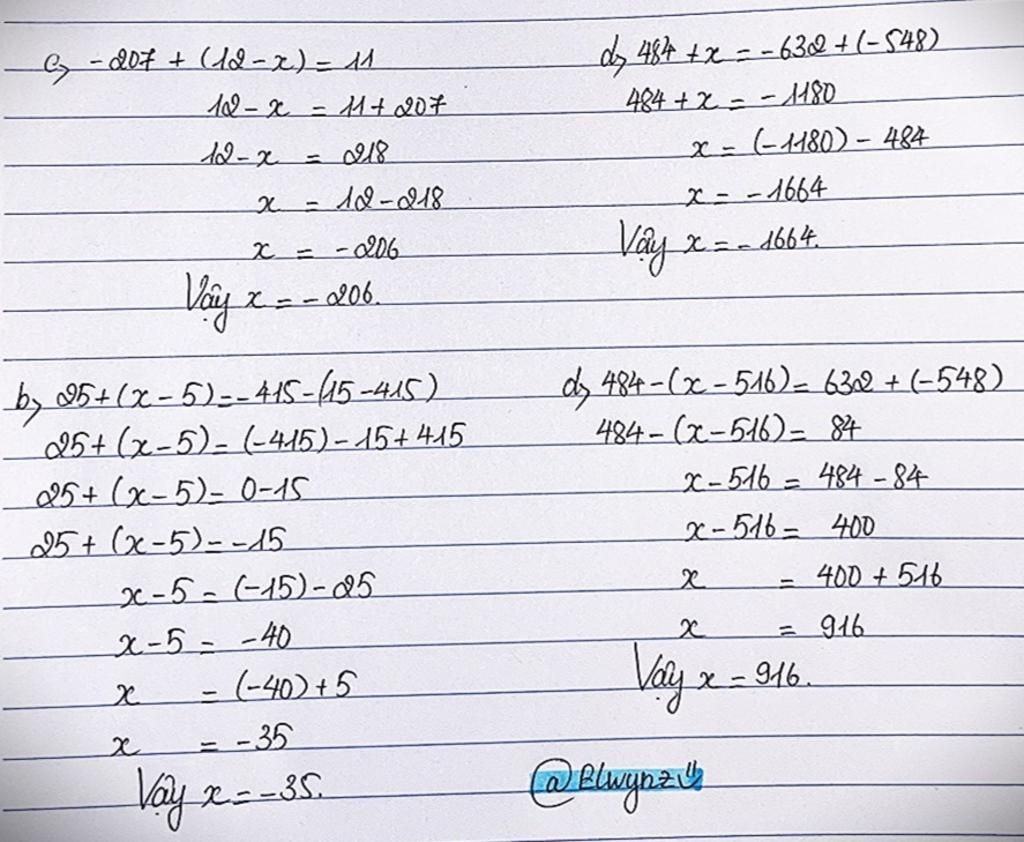 c, -207 + (12 - x) = 11
12 - x = 11 + 207
12 - x = 218
x = 12 - 218
x = -206
Vậy x = -206.
d, 484 + x = -632 + (-548)
484 + x = -1180
x = (-1180) - 484
x = -1664
Vậy x = -1664.
b, 25 + (x - 5) = -415 - (15 - 415)
25 + (x - 5) = (-415) - 15 + 415
25 + (x - 5) = 0 - 15
25 + (x - 5) = -15
x - 5 = (-15) - 25
x - 5 = -40
x = (-40) + 5
x = -35
Vậy x = -35.
d, 484 - (x - 516) = 632 + (-548)
484 - (x - 516) = 84
x - 516 = 484 - 84
x - 516 = 400
x = 400 + 516
x = 916
Vậy x = 916.
@Elwynz